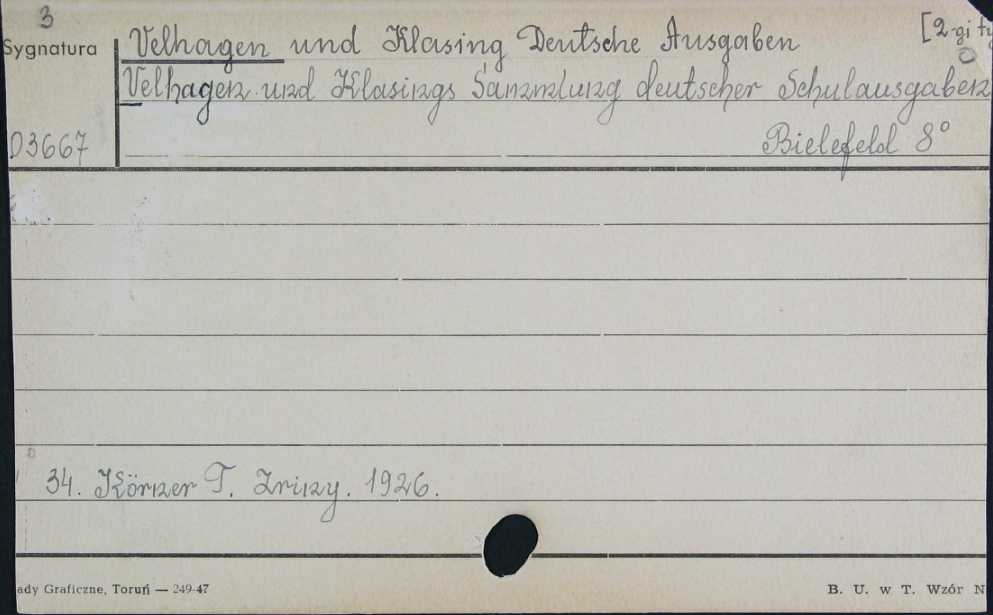 3
Sygnatura
Velhagen und Klasing Deutsche Ausgaben [2-gi ty
Velhagen und Klasings Sammlung deutscher Schulausgaben
03667
Bielefeld 8°
34. Körner T. Zriny. 1926.
ady Graficzne, Toruń — 249-47
B. U. w T. Wzór N